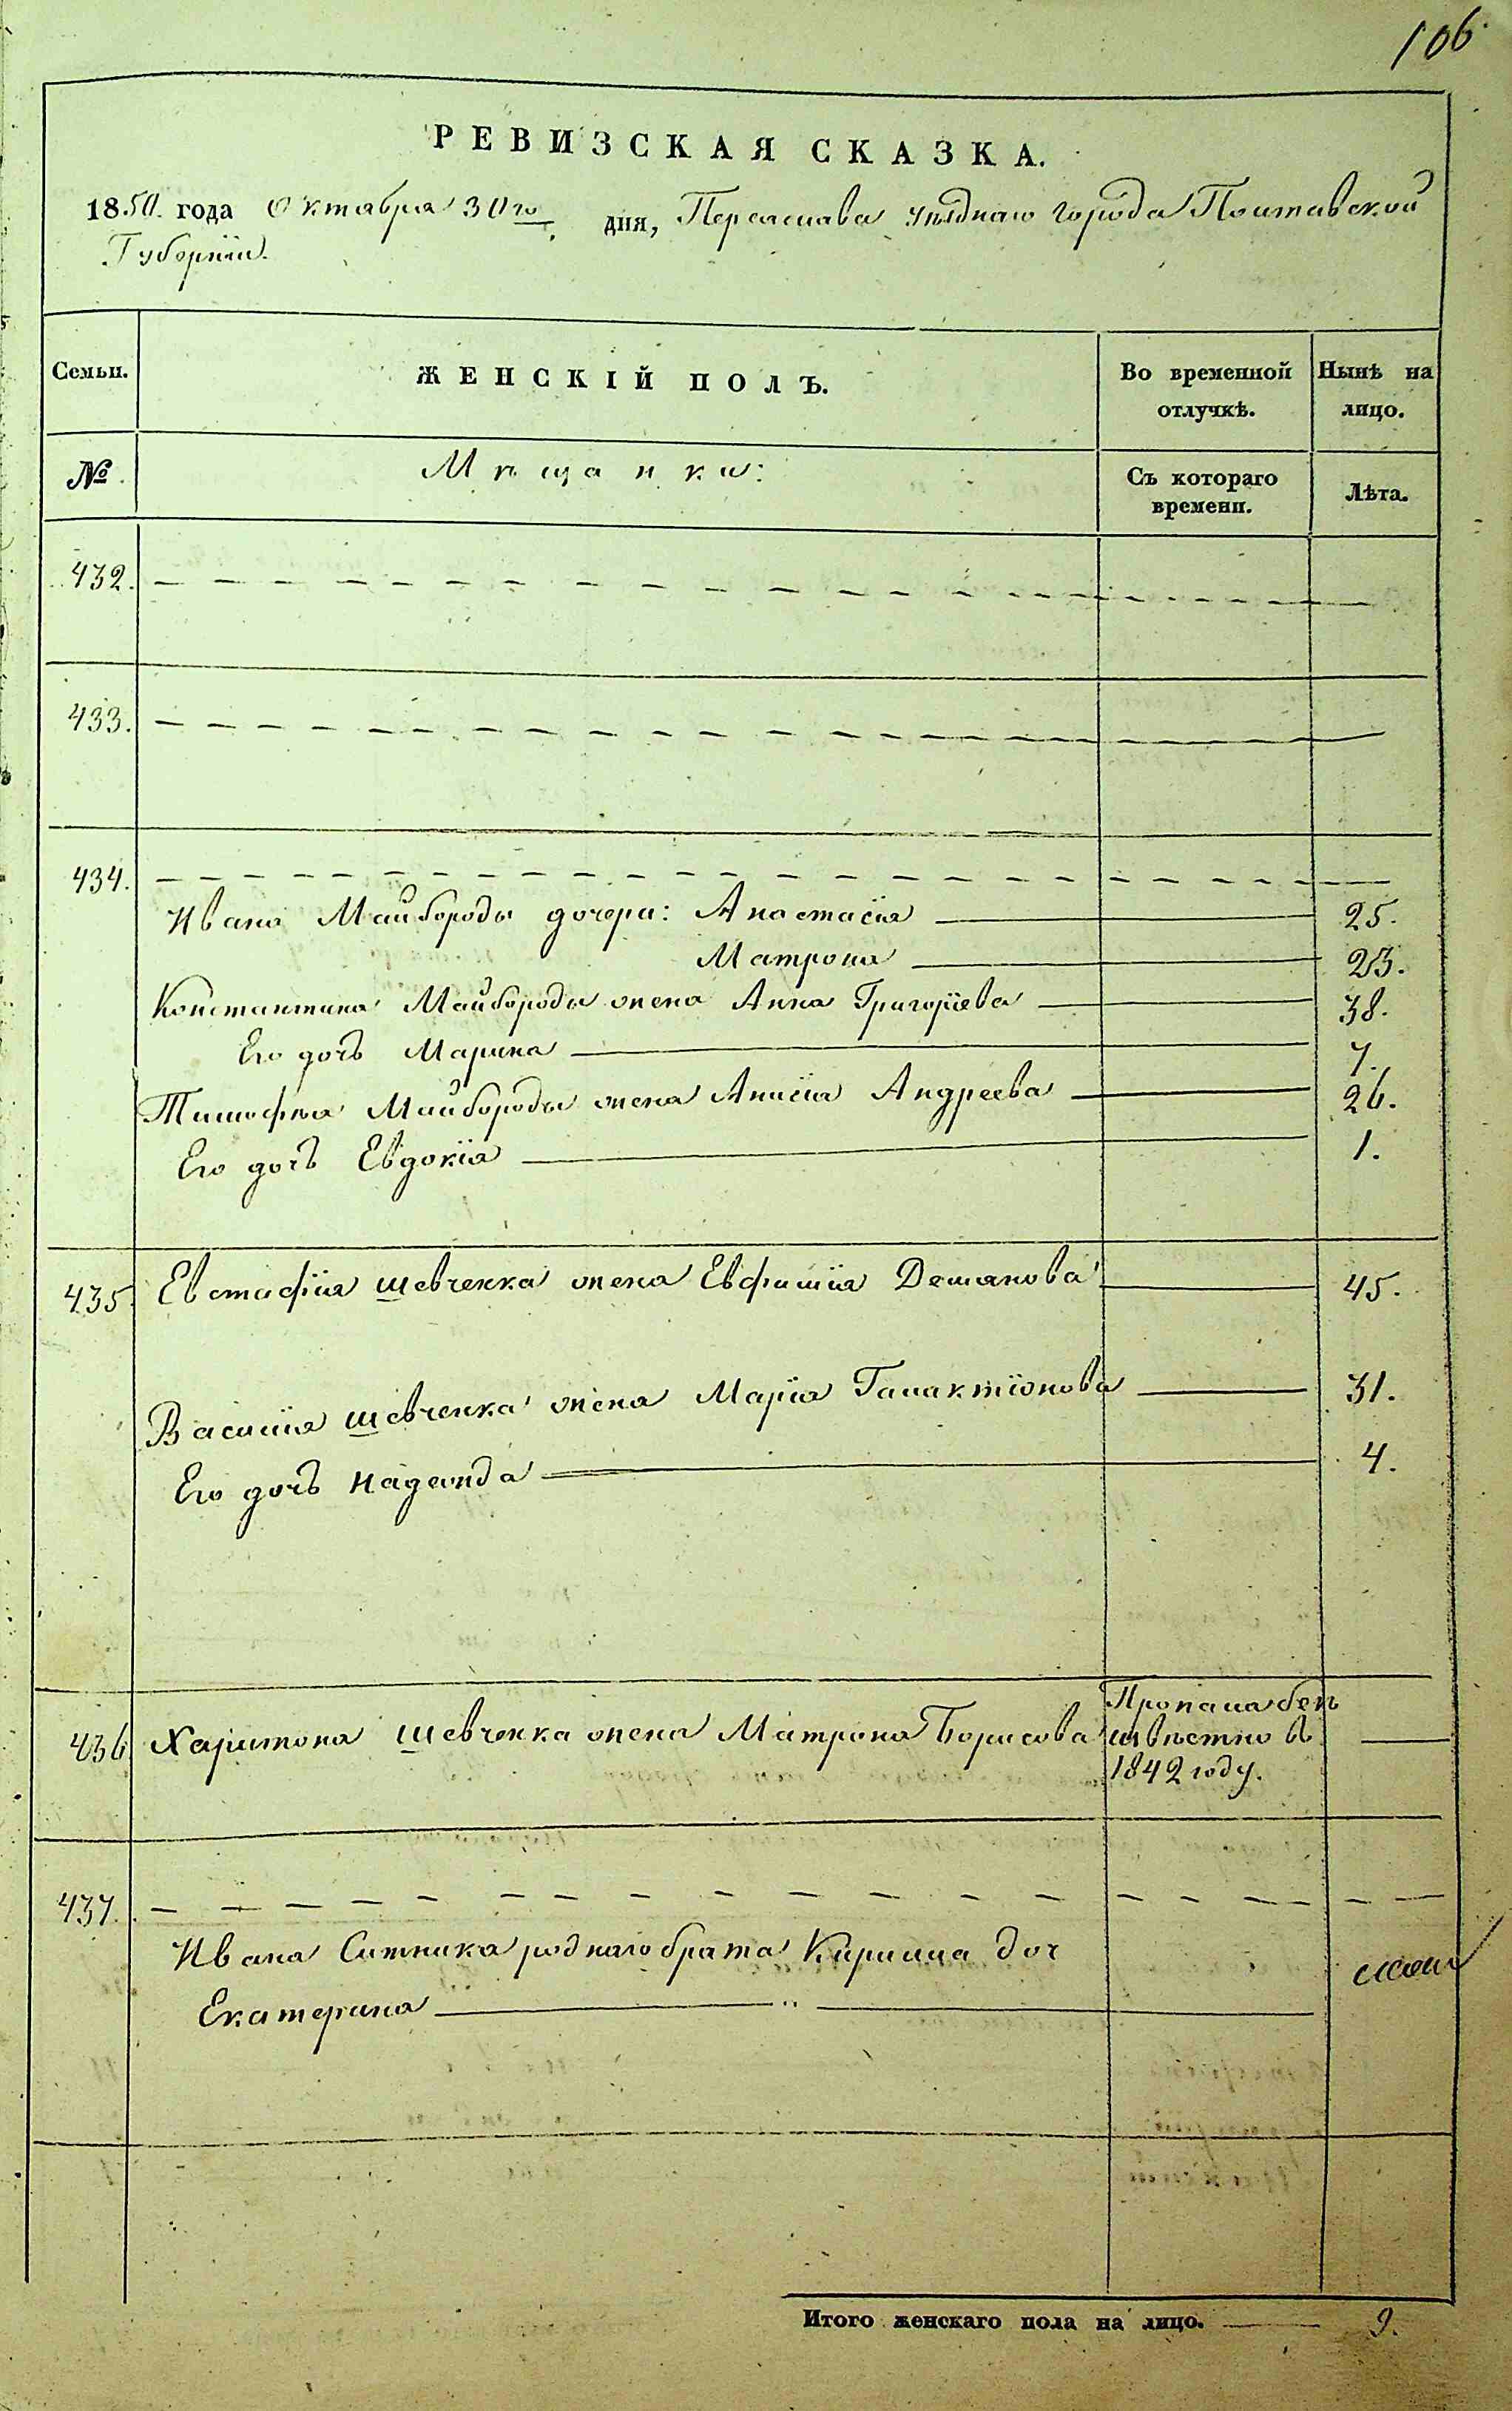 106.
РЕВИЗСКАЯ СКАЗКА.
1850. года Октября 30го дня, Переяслава уѣзднаго города Полтавской
Губерніи.
Семьи.
ЖЕНСКІЙ ПОЛЪ.
Во временной отлучкѣ.
Нынѣ на лицо.
№
Мѣщанки:
Съ котораго времени.
Лѣта.
432.
433.
434.
Ивана Майбороды дочери: Анастасія 25.
Матрона 23.
Константина Майбороды жена Анна Григоріева 38.
Его дочь Марина 7.
Тимофѣя Майбороды жена Анисія Андреева 26.
Его дочь Евдокія 1.
435. Евстафія Шевченка жена Евфимія Демянова 45.
Василія Шевченка жена Марія Галактіонова 31.
Его дочь Надежда 4.
436 Харитона Шевченка жена Матрона Борисова Пропала безъ
извѣстно въ
1842 году.
437.
Ивана Ситника роднаго брата Кирилла доч
Екатерина
Итого женскаго пола на лицо. 9.